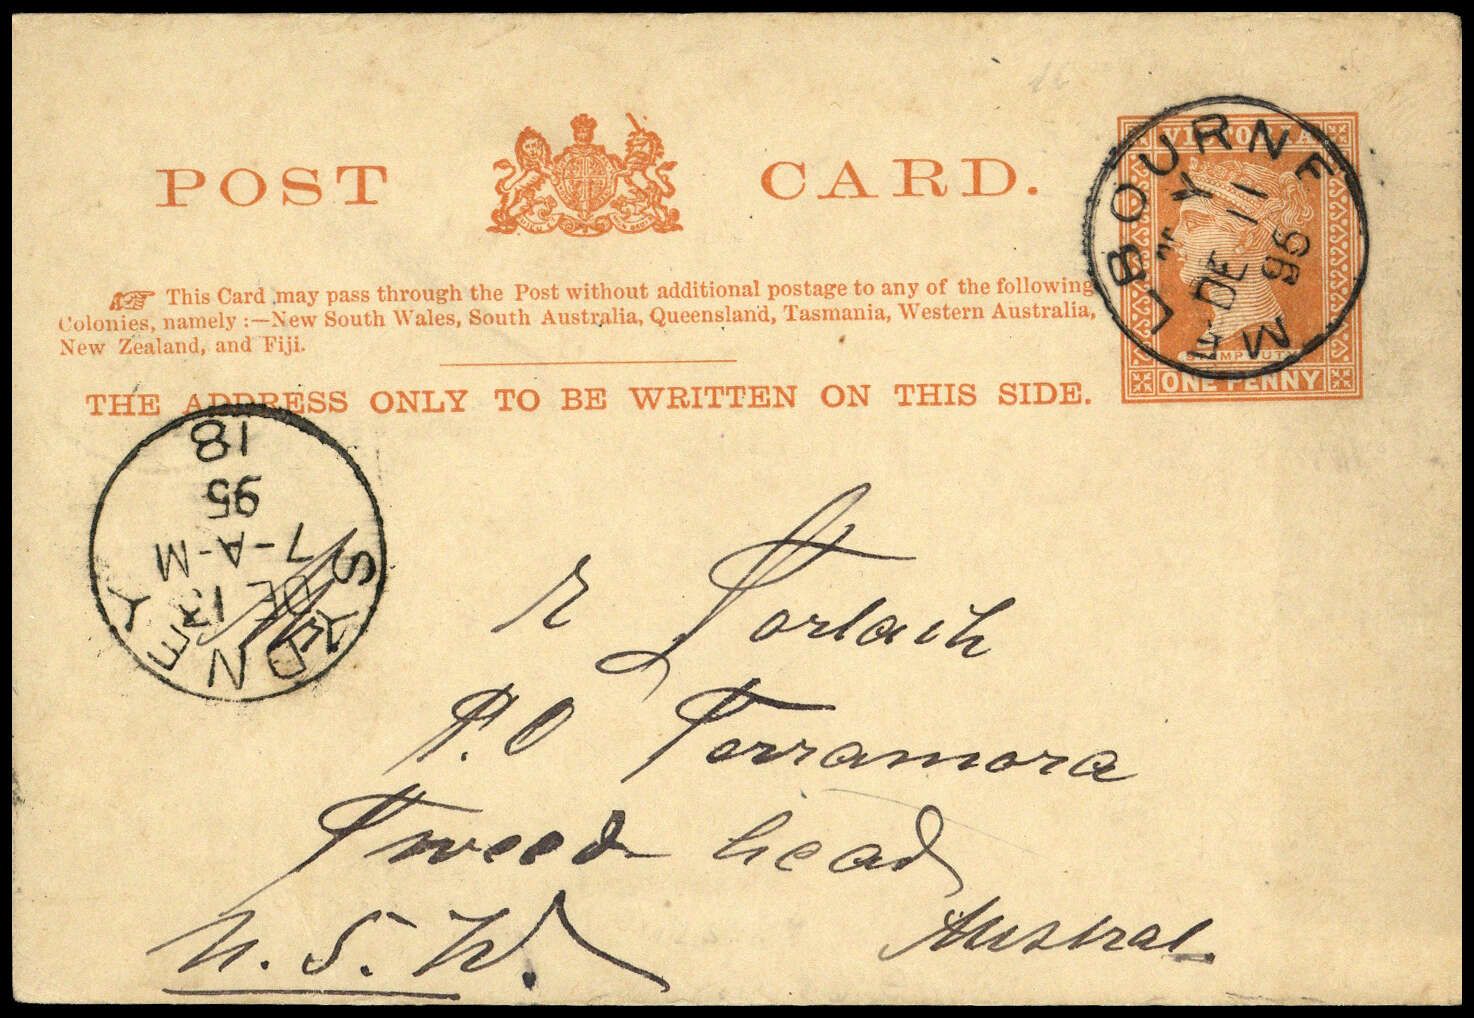 POST CARD.
VICTORIA
MELBOURNE
DE 11
95
STAMP DUTY
ONE PENNY
This Card may pass through the Post without additional postage to any of the following
Colonies, namely :—New South Wales, South Australia, Queensland, Tasmania, Western Australia,
New Zealand, and Fiji.
THE ADDRESS ONLY TO BE WRITTEN ON THIS SIDE.
SYDNEY
DE 13
7-A-M
95
18
P.O Terramora
Tweed head
N. S. W.
Austral